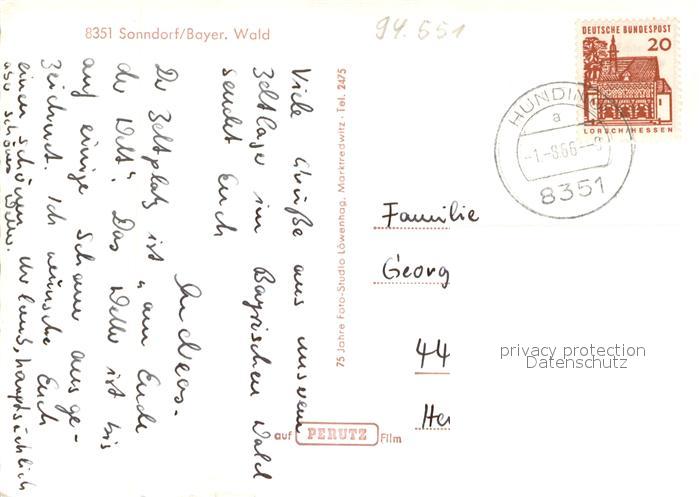 8351 Sonndorf/Bayer. Wald
94.551
DEUTSCHE BUNDESPOST
20
LORSCH/HESSEN
HUNDING
a
-1.-8.66--9
8351
Viele Grüße aus unserem
Zeltlager im Bayrischen Wald
sendet Euch
Andreas.
Der Zeltplatz ist "am Ende
der Welt". Das Wetter ist bis
auf einige Schauer ausge-
zeichnet. Ich wünsche Euch
einen schönen Urlaub, hauptsächlich
aber schönes Wetter.
75 Jahre Foto-Studio Löwenhag, Marktredwitz · Tel. 2475
auf PERUTZ Film
Familie
Georg
44
He
privacy protection
Datenschutz